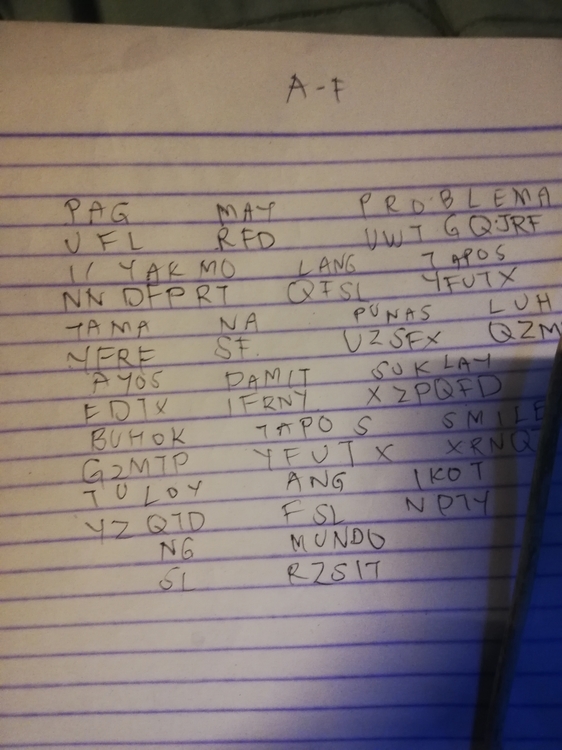 A-F
PAG MAY PROBLEMA
UFL RFD UWTGQJRF
IIYAK MO LANG TAPOS
NNDFPRT QFSL YFUTX
TAMA NA PUNAS LUH
YFRF SF. UZSFX QZM
AYOS DAMIT SUKLAY
FDTX IFRNY XZPQFD
BUHOK TAPOS SMILE
GZMTP YFUTX XRNQ
TULOY ANG IKOT
YZQTD FSL NPTY
NG MUNDO
SL RZSIT